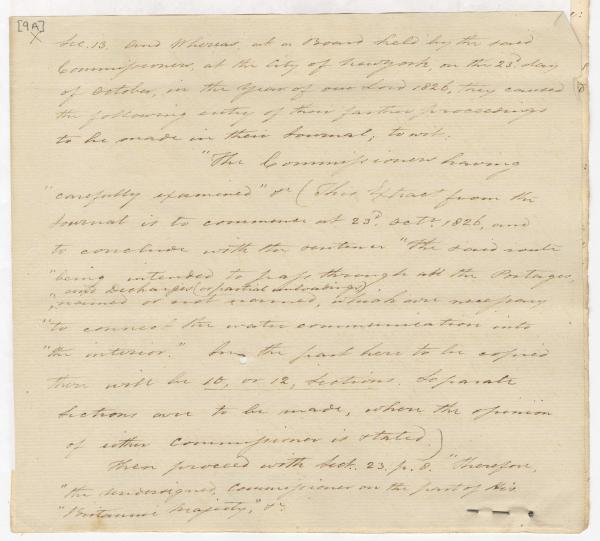 [9A]
Sec. 13. And Whereas, at a Board held by the said
Commissioners, at the City of New York, on the 23d day
of October, in the Year of our Lord 1826, they caused
the following entry of their further proceedings
to be made in their Journal; to wit:
"The Commissioners having
"carefully examined" &c (This Extract from the
Journal is to commence at 23d Octr. 1826, and
to conclude with the sentence "the said route
"being intended to pass through all the Portages,
and Decharges (or partial unloadings)
"named or not named, which are necessary
"to connect the water communication into
"the interior." In the part here to be copied
there will be 10, or 12, Sections. Separate
Sections are to be made, where the opinion
of either Commissioner is stated.)
Then proceed with Sect. 23. p. 8. "Therefore,
"the Undersigned, Commissioner on the part of His
"Britannic Majesty," &c.